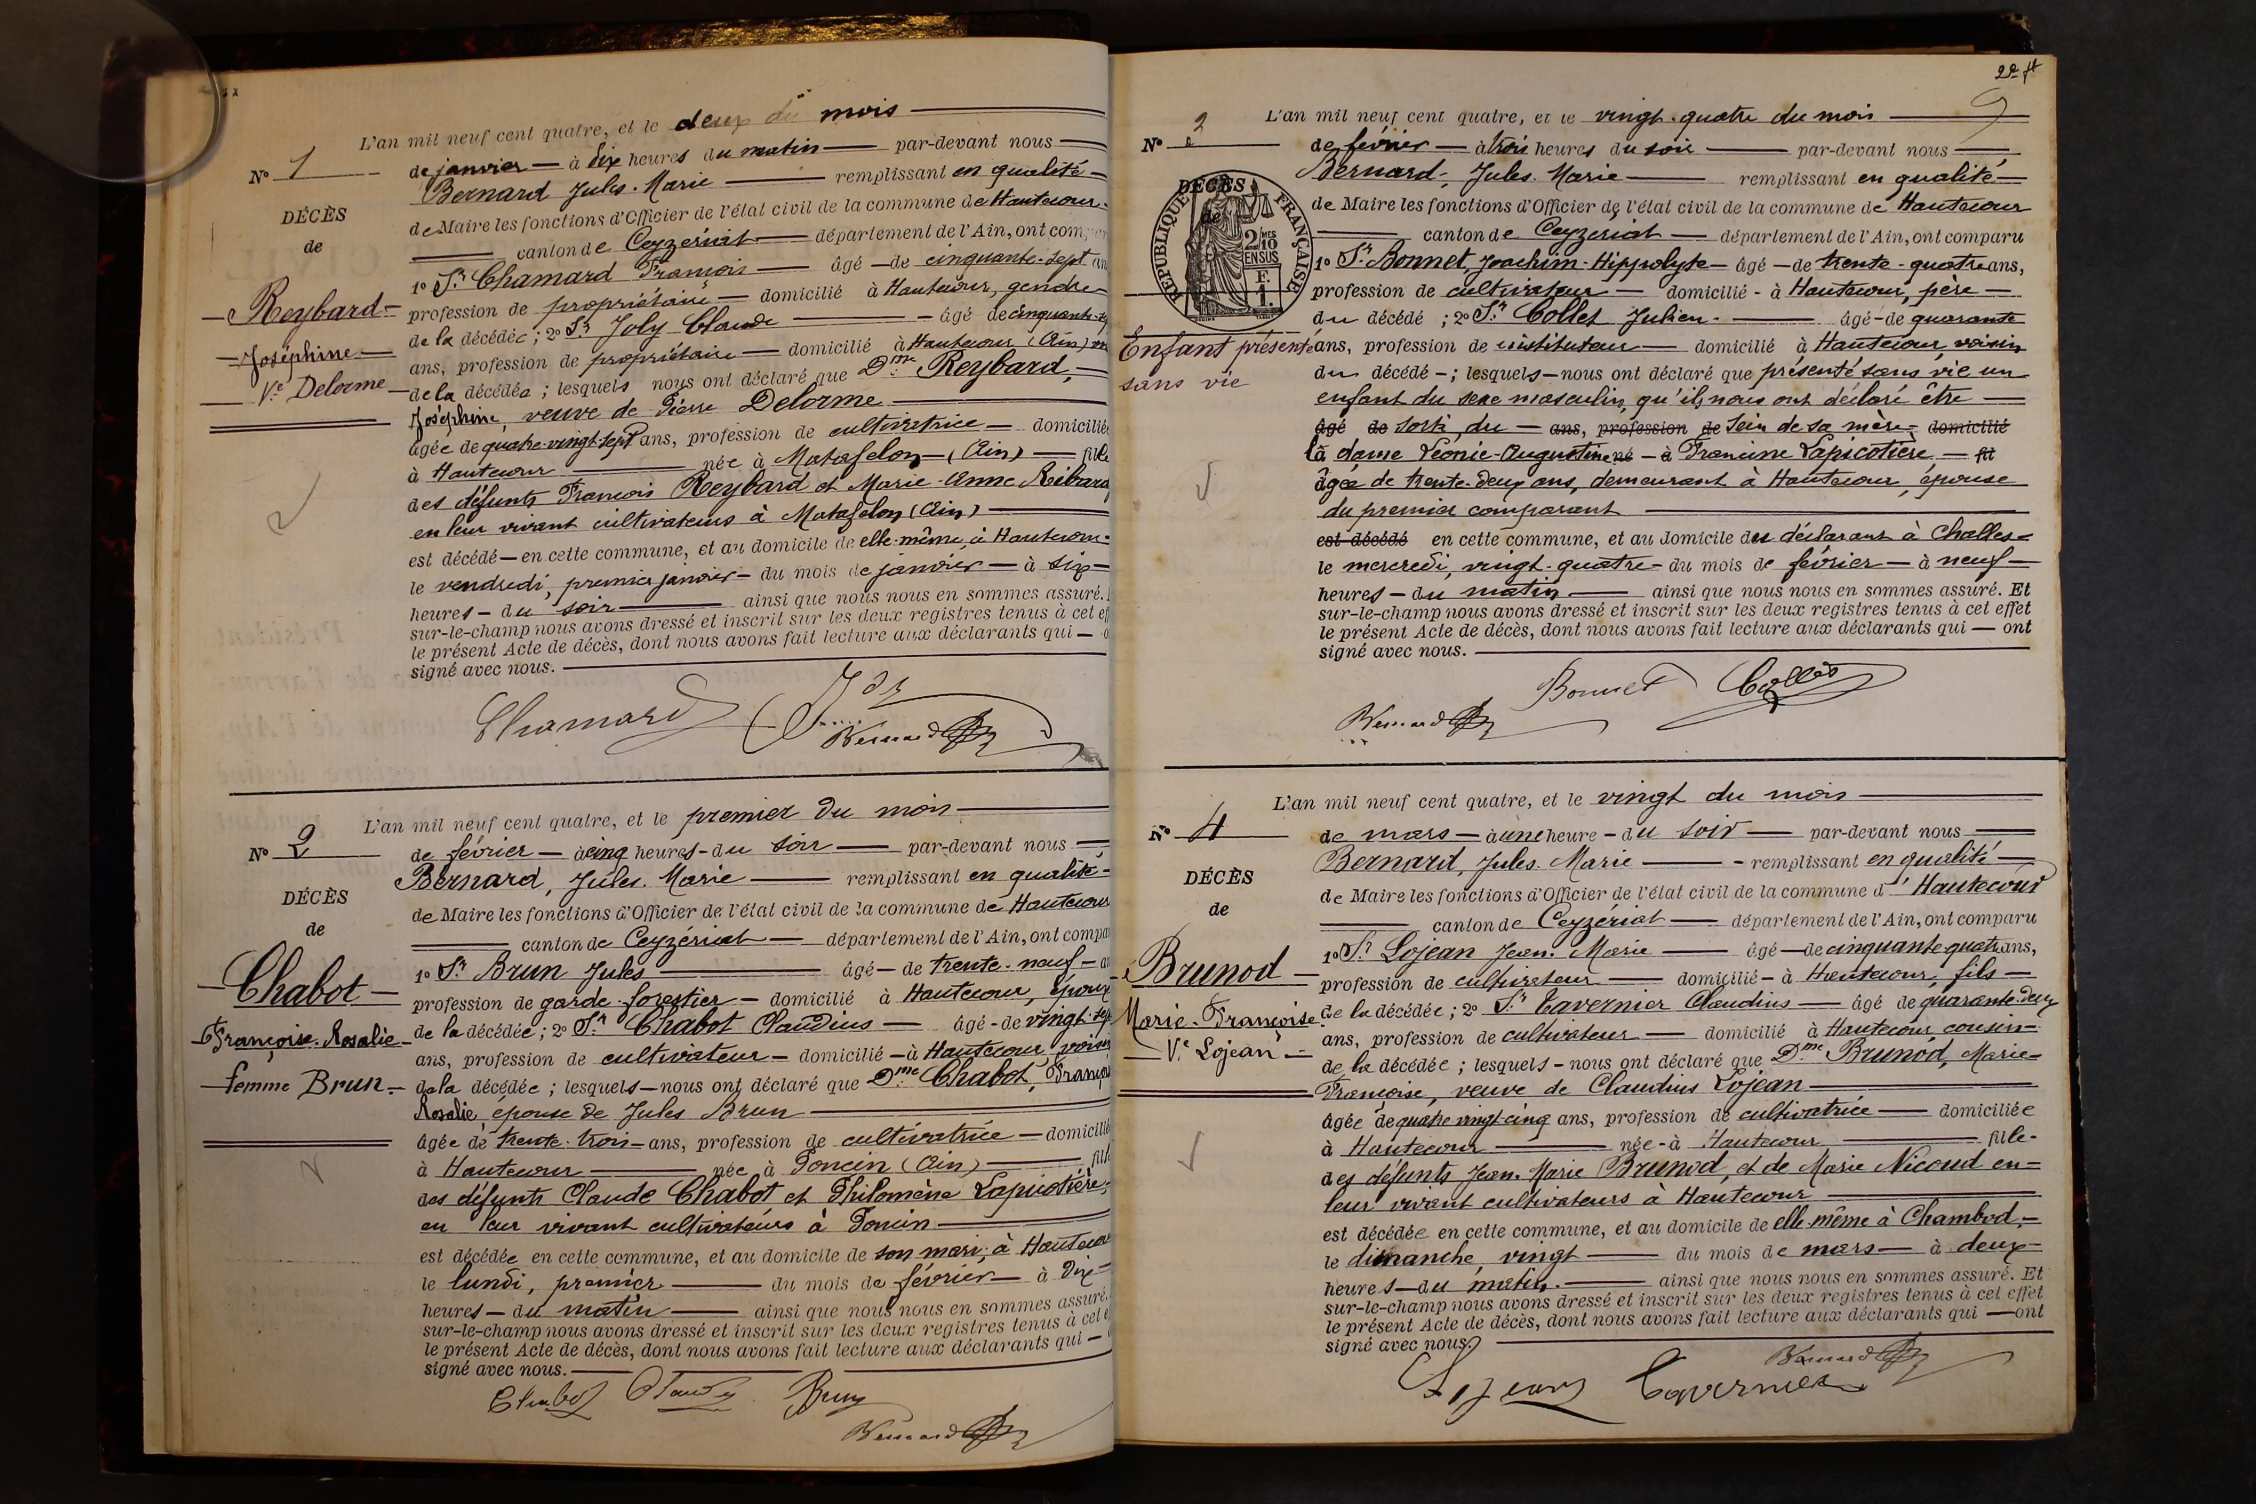 L'an mil neuf cent quatre, et le deux du mois
N° 1
de janvier — à dix heures du matin — par-devant nous —
Bernard Jules-Marie — remplissant en qualité —
DÉCÈS
de Maire les fonctions d'Officier de l'état civil de la commune de Hautecour
de
canton de Ceyzériat — département de l'Ain, ont
1° Sr Chamard François — âgé — de cinquante-sept
Reybard
profession de propriétaire — domicilié à Hautecour, gendre
de la décédée ; 2° Sr Joly Claude — âgé de cinquante-
Joséphine
ans, profession de propriétaire — domicilié à Hautecour (Ain)
Ve Delorme
de la décédée ; lesquels nous ont déclaré que Dme Reybard,
Joséphine, veuve de Pierre Delorme
âgée de quatre-vingt-sept ans, profession de cultivatrice — domiciliée
à Hautecour — née à Matafelon — (Ain) — fille
des défunts François Reybard et Marie-Anne
en leur vivant cultivateurs à Matafelon (Ain)
est décédé — en cette commune, et au domicile de elle-même à Hautecour
le vendredi, premier janvier — du mois de janvier — à six —
heures — du soir — ainsi que nous nous en sommes assuré.
sur-le-champ nous avons dressé et inscrit sur les deux registres tenus à cet
le présent Acte de décès, dont nous avons fait lecture aux déclarants qui —
signé avec nous.
Chamard
Bernard
L'an mil neuf cent quatre, et le premier du mois
N° 2
de février — à cinq heures — du soir — par-devant nous —
Bernard, Jules-Marie — remplissant en qualité —
DÉCÈS
de Maire les fonctions d'Officier de l'état civil de la commune de Hautecour
de
canton de Ceyzériat — département de l'Ain, ont
1° Sr Brun Jules — âgé — de trente-neuf —
Chabot
profession de garde-forestier — domicilié à Hautecour, époux
Françoise-Rosalie
de la décédée ; 2° Sr Chabot Claudius — âgé — de vingt-sept
ans, profession de cultivateur — domicilié — à Hautecour voisin
femme Brun
de la décédée ; lesquels — nous ont déclaré que Dme Chabot,
Rosalie, épouse de Jules Brun
âgée de trente-trois — ans, profession de cultivatrice — domiciliée
à Hautecour — née à Poncin (Ain) — fille
des défunts Claude Chabot et Philomène Lapicotière,
en leur vivant cultivateurs à Poncin
est décédée en cette commune, et au domicile de son mari, à Hautecour
le lundi, premier — du mois de février — à dix —
heures — du matin — ainsi que nous nous en sommes assuré.
sur-le-champ nous avons dressé et inscrit sur les deux registres tenus à cet
le présent Acte de décès, dont nous avons fait lecture aux déclarants qui —
signé avec nous.
Chabot Claudius Brun
Bernard
L'an mil neuf cent quatre, et le vingt-quatre du mois
N°
de février — à trois heures du soir — par-devant nous —
Bernard, Jules-Marie — remplissant en qualité —
DÉCÈS
de
RÉPUBLIQUE FRANÇAISE
2 MES
10
EN SUS
F.
1.
de Maire les fonctions d'Officier de l'état civil de la commune de Hautecour
canton de Ceyzériat — département de l'Ain, ont comparu
1° Sr Bonnet, Joachim-Hippolyte — âgé — de trente-quatre ans,
profession de cultivateur — domicilié — à Hautecour, père —
du décédé ; 2° Sr Collet Julien — âgé — de quarante
Enfant présenté
sans vie
ans, profession de instituteur — domicilié à Hautecour, voisin
du décédé — ; lesquels — nous ont déclaré que présenté sans vie un
enfant du sexe masculin, qu'ils nous ont déclaré être —
âgé de sorti, du — ans, profession de sein de sa mère — domicilié
la dame Léonie-Augustine né — à Francine Lapicotière — fil
âgée de trente-deux ans, demeurant à Hautecour, épouse
du premier comparant
est décédé en cette commune, et au domicile des déclarant à Challes
le mercredi, vingt-quatre — du mois de février — à neuf —
heures — du matin — ainsi que nous nous en sommes assuré. Et
sur-le-champ nous avons dressé et inscrit sur les deux registres tenus à cet effet
le présent Acte de décès, dont nous avons fait lecture aux déclarants qui — ont
signé avec nous.
Bonnet Collet
Bernard
L'an mil neuf cent quatre, et le vingt du mois
N° 4
de mars — à une heure — du soir — par-devant nous —
Bernard, Jules-Marie — remplissant en qualité —
DÉCÈS
de Maire les fonctions d'Officier de l'état civil de la commune d'Hautecour
de
canton de Ceyzériat — département de l'Ain, ont comparu
1° Sr Lojean Jean-Marie — âgé — de cinquante-quatre ans,
Brunod
profession de cultivateur — domicilié — à Hautecour, fils —
Marie-Françoise
de la décédée ; 2° Sr Tavernier Claudius — âgé de quarante-deux
ans, profession de cultivateur — domicilié à Hautecour cousin
Ve Lojean
de la décédée ; lesquels — nous ont déclaré que Dme Brunod, Marie-
Françoise, veuve de Claudius Lojean
âgée de quatre-vingt-cinq ans, profession de cultivatrice — domiciliée
à Hautecour — née — à Hautecour — fille —
des défunts Jean-Marie Brunod, et de Marie Nicoud en
leur vivant cultivateurs à Hautecour
est décédée en cette commune, et au domicile de elle-même à Chambod,
le dimanche, vingt — du mois de mars — à deux
heures — du matin — ainsi que nous nous en sommes assuré. Et
sur-le-champ nous avons dressé et inscrit sur les deux registres tenus à cet effet
le présent Acte de décès, dont nous avons fait lecture aux déclarants qui — ont
signé avec nous.
Bernard
Lojean Tavernier